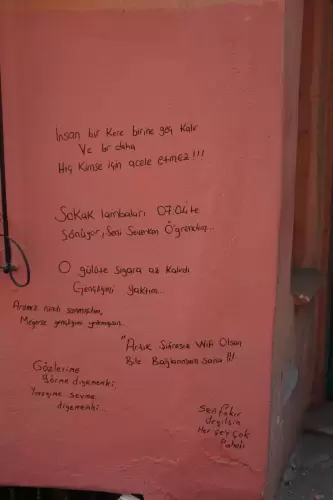 İnsan bir Kere birine geç Kalır
Ve bir daha
Hiç Kimse için acele etmez!!!
Sokak lambaları 07:04'te
Sönüyor, Seni Severken Öğrendim...
O gülüşe sigara az kalırdı
Gençliğimi Yaktım...
gençliğimi
"Artık Şifresiz Wifi Olsan
Bile Bağlanmam Sana !!!
Gözlerine
Görme diyemenki,
Yüreğime sevme
diyemenki...
Sen fakir
değilsin
Her şey çok
Pahalı